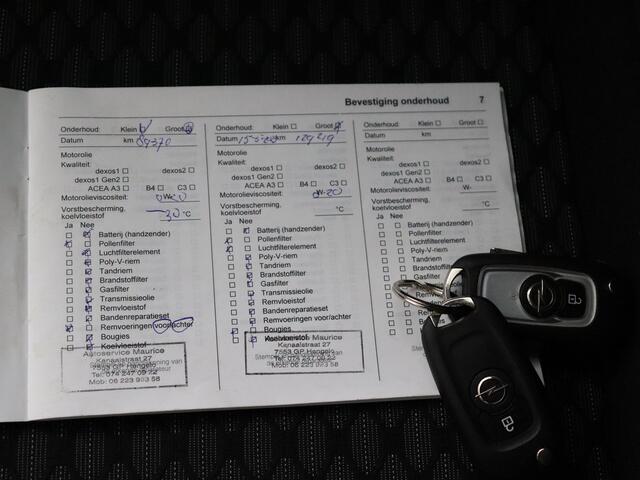 Bevestiging onderhoud 7
Onderhoud: Klein Groot
Datum km 89370
Motorolie
Kwaliteit:
dexos1 dexos2
dexos1 Gen2
ACEA A3 B4 C3
Motorolieviscositeit: 0W-20
Vorstbescherming,
koelvloeistof -30 °C
Ja Nee
Batterij (handzender)
Pollenfilter
Luchtfilterelement
Poly-V-riem
Tandriem
Brandstoffilter
Gasfilter
Transmissieolie
Remvloeistof
Bandenreparatieset
Remvoeringen voor/achter
Bougies
Koelvloeistof
Autoservice Maurice
Kanaalstraat 27
7553 GP Hengelo
Tel: 074 247 09 22
Mob: 06 223 993 58
Onderhoud: Klein Groot
Datum km 129219
Motorolie
Kwaliteit:
dexos1 dexos2
dexos1 Gen2
ACEA A3 B4 C3
Motorolieviscositeit: W-20
Vorstbescherming,
koelvloeistof °C
Ja Nee
Batterij (handzender)
Pollenfilter
Luchtfilterelement
Poly-V-riem
Tandriem
Brandstoffilter
Gasfilter
Transmissieolie
Remvloeistof
Bandenreparatieset
Remvoeringen voor/achter
Bougies
Koelvloeistof
Autoservice Maurice
Kanaalstraat 27
7553 GP Hengelo
Tel: 074 247 09 22
Mob: 06 223 993 58
Onderhoud: Klein Groot
Datum km
Motorolie
Kwaliteit:
dexos1 dexos2
dexos1 Gen2
ACEA A3 B4 C3
Motorolieviscositeit: W-
Vorstbescherming,
koelvloeistof °C
Ja Nee
Batterij (handzender)
Pollenfilter
Luchtfilterelement
Poly-V-riem
Tandriem
Brandstoffilter
Gasfilter